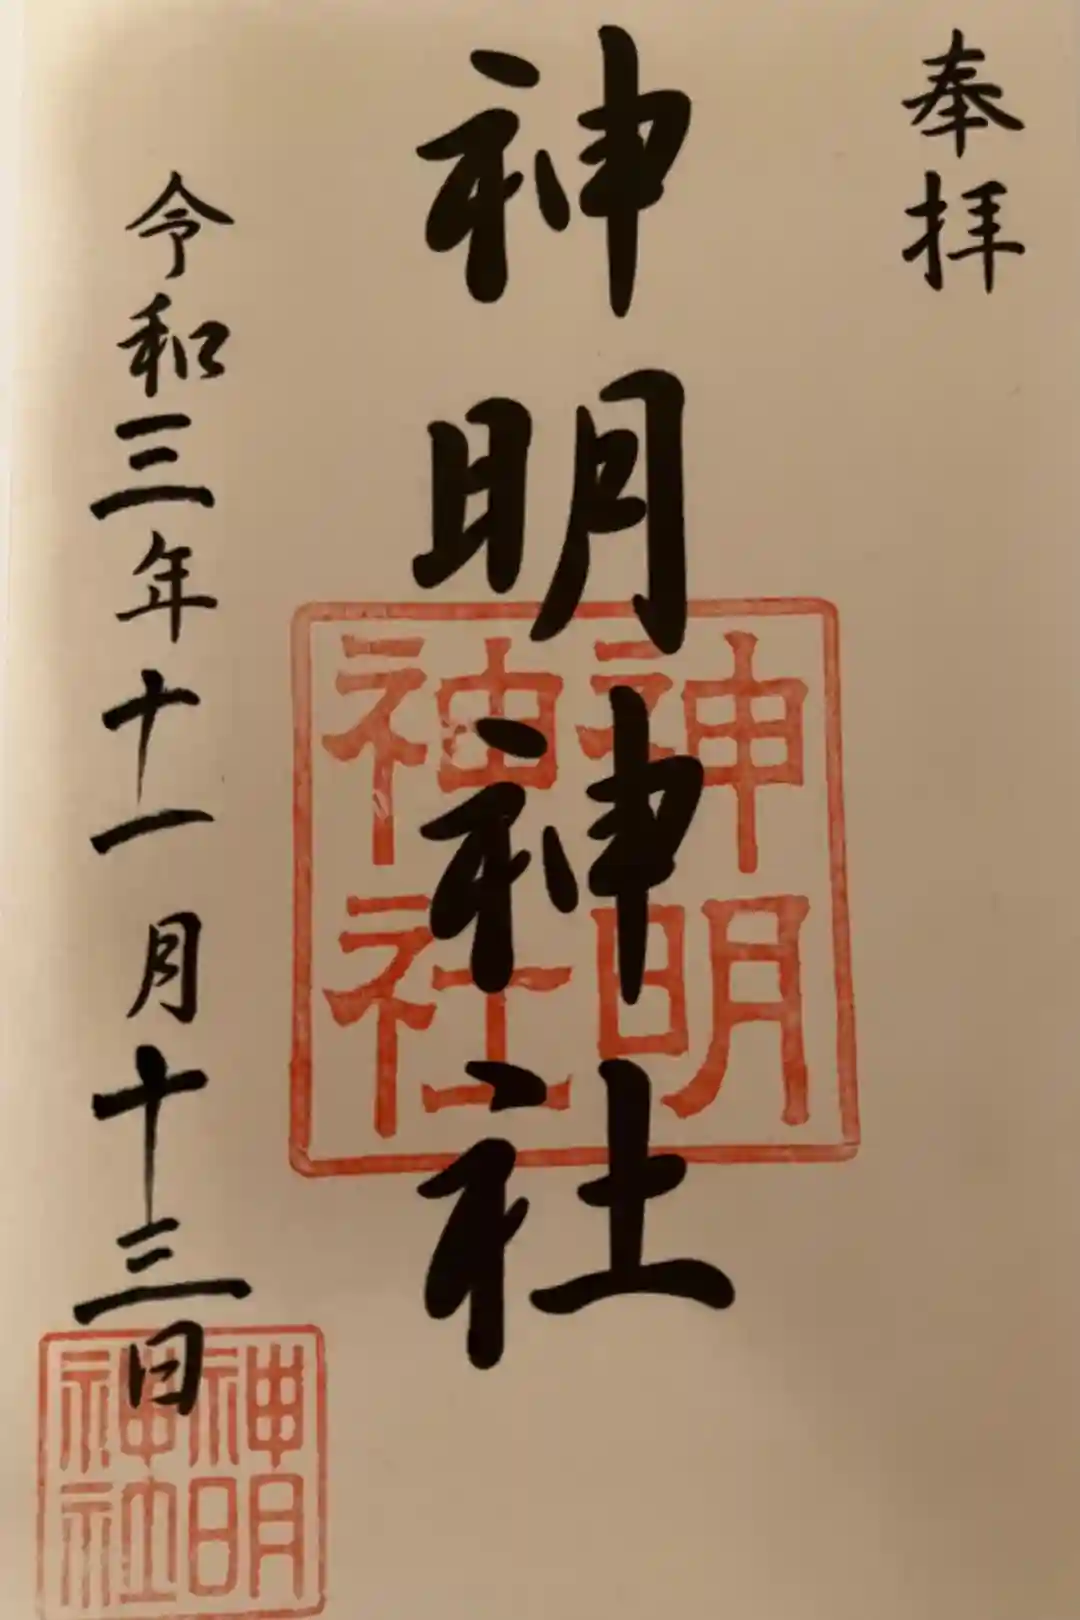 奉拝
神明神社
神明神社
令和三年十一月十三日
神明神社